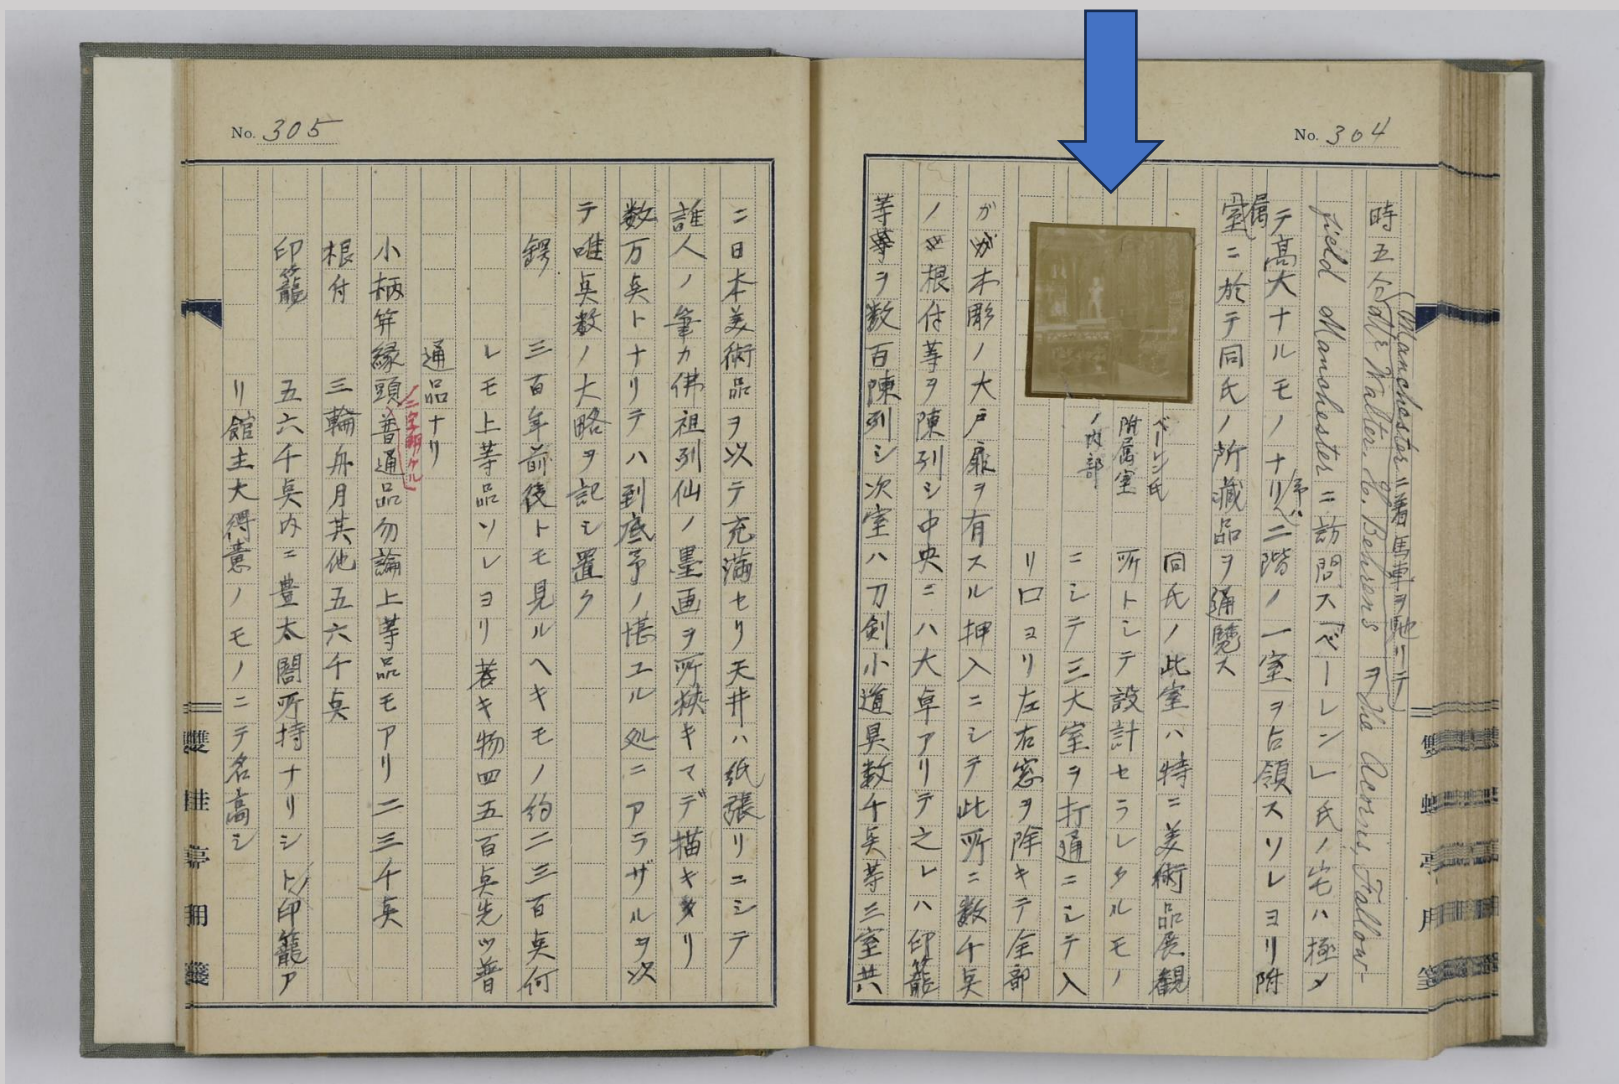 No. 304
時五分
(Manchesterニ着馬車ヲ馳リテ
Mr Walter. L. Behrens ヲ The Acorns, Fallow-
field Manchester ニ訪問ス「ベーレン」氏ノ宅ハ極メ
テ高大ナルモノナリ予ハ二階ノ一室ヲ占領スソレヨリ附
属室ニ於テ同氏ノ所蔵品ヲ通覧ス
ベーレン氏
附属室
ノ内部
同氏ノ此室ハ特ニ美術品展観
所トシテ設計セラレタルモノ
ニシテ三大室ヲ打通ニシテ入
リ口ヨリ左右窓ヲ除キテ全部
ガ木彫ノ大戸扉ヲ有スル押入ニシテ此所ニ数千点
ノ根付等ヲ陳列シ中央ニハ大卓アリテ之レハ印籠
等ヲ数百陳列シ次室ハ刀剣小道具数千点等三室共
No. 305
ニ日本美術品ヲ以テ充満セリ天井ハ紙張リニシテ
誰人ノ筆カ佛祖列仙ノ墨画ヲ所狭キマデ描キタリ
数万点トナリテハ到底予ノ堪エル処ニアラザルヲ次
テ唯点数ノ大略ヲ記シ置ク
鍔 三百年前後トモ見ルヘキモノ約二三百点何
レモ上等品ソレヨリ若キ物四五百点先ツ普
通品ナリ
小柄并縁頭普通品勿論上等品モアリ二三千点
根付 三輪舟月其他五六千点
印籠 五六千点内ニ豊太閤所持ナリシト印籠ア
リ館主大得意ノモノニテ名高シ
雙桂亭用箋